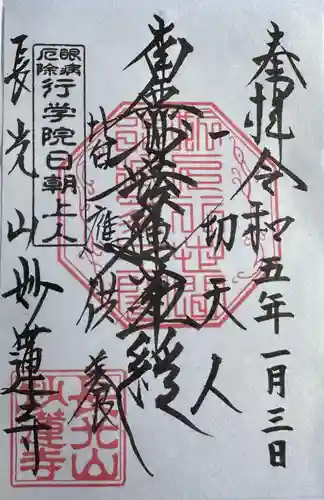 奉拝 令和五年一月三日
一切天人
南無妙法蓮華経
皆應供養
眼病
厄除
行学院日朝上人
長光山妙蓮寺
長光山
妙蓮寺